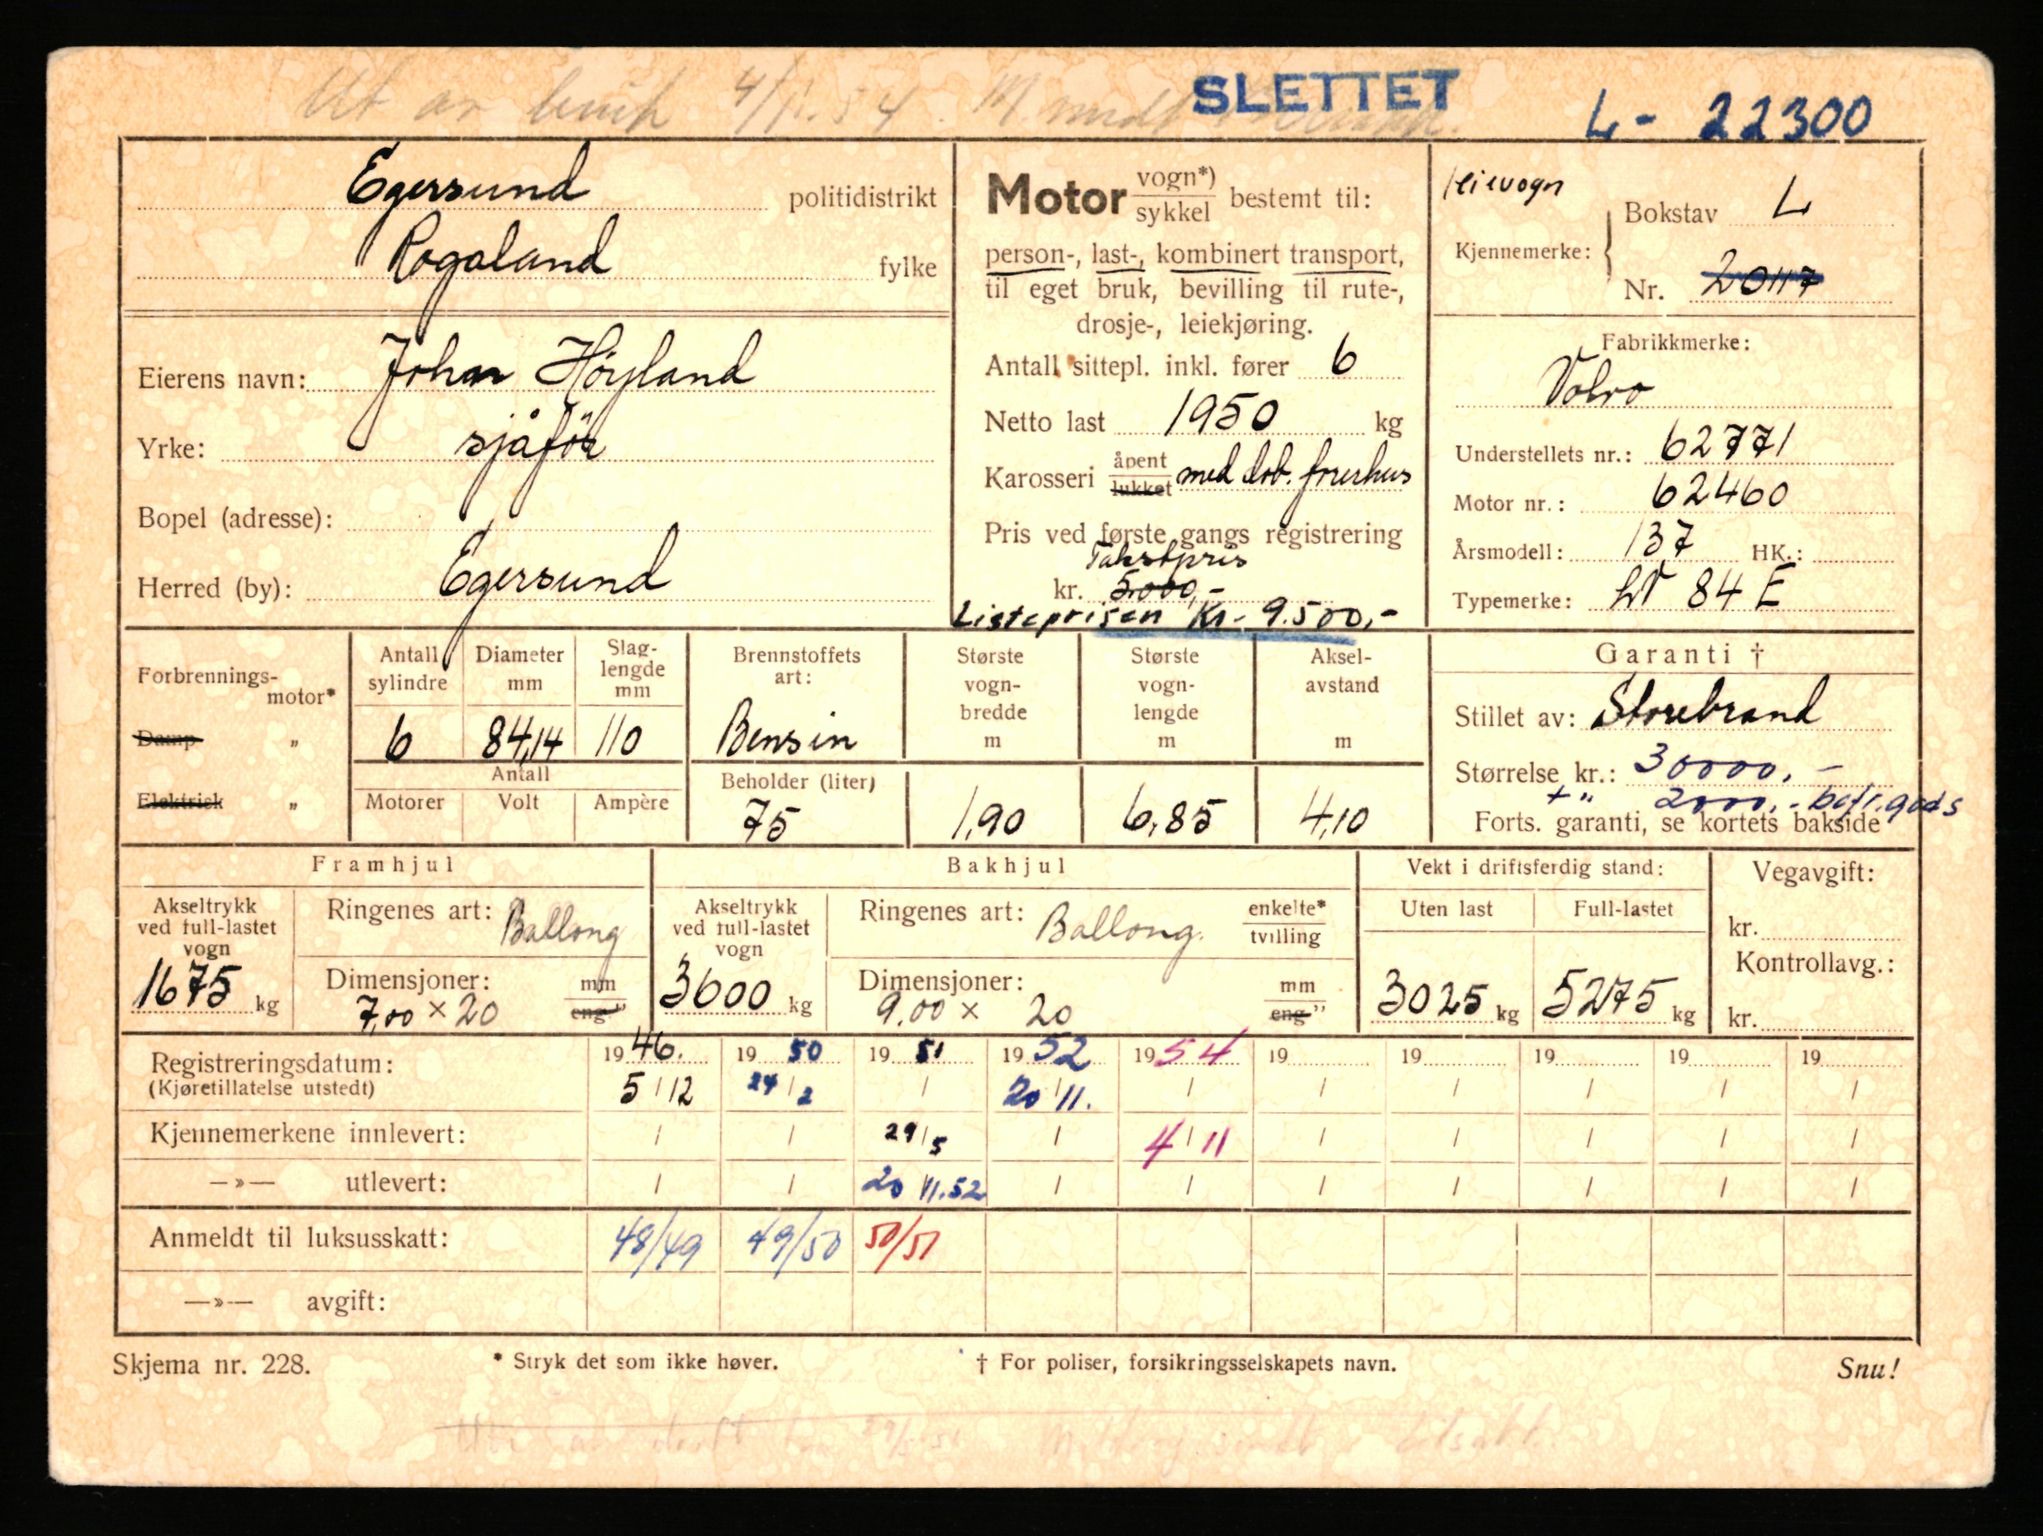 Ut av bruk 4/11.54. M. sendt
SLETTET
L - 22300
Egersund politidistrikt
Rogaland fylke
Eierens navn: Johan Höyland
Yrke: sjåför
Bopel (adresse):
Herred (by): Egersund
Motor vogn*) / sykkel bestemt til:
person-, last-, kombinert transport,
til eget bruk, bevilling til rute-,
drosje-, leiekjøring.
Antall sittepl. inkl. fører 6
Netto last 1950 kg
Karosseri åpent / lukket med dob. förerhus
Pris ved første gangs registrering
Takstpris
kr. 5.000,-
Listeprisen Kr. 9.500,-
Leievogn
Bokstav L
Kjennemerke:
Nr. 20117
Fabrikkmerke:
Volvo
Understellets nr.: 62771
Motor nr.: 62460
Årsmodell: 137 HK.:
Typemerke: LV 84 E
Forbrennings-motor*
Damp "
Elektrisk "
Antall sylindre
6
Diameter mm
84,14
Slag-lengde mm
110
Antall
Motorer Volt Ampère
Brennstoffets art:
Bensin
Beholder (liter)
75
Største vogn-bredde m
1,90
Største vogn-lengde m
6,85
Aksel-avstand m
4,10
Garanti †
Stillet av: Storebrand
Størrelse kr.: 30000,-
+ " 2000,- bef. gods
Forts. garanti, se kortets bakside
Framhjul
Akseltrykk ved full-lastet vogn
1675 kg
Ringenes art: Ballong
Dimensjoner: mm / eng"
7,00 × 20
Bakhjul
Akseltrykk ved full-lastet vogn
3600 kg
Ringenes art: Ballong. enkelte* / tvilling
Dimensjoner: mm / eng"
9.00 × 20
Vekt i driftsferdig stand:
Uten last Full-lastet
3025 kg 5275 kg
Vegavgift:
kr.
Kontrollavg.:
kr.
Registreringsdatum: 1946. 1950 1951 1952 1954 19 19 19 19 19
(Kjøretillatelse utstedt) 5/12 24/2 / 20/11. / / / / / /
Kjennemerkene innlevert: / / 29/5 / 4/11 / / / / /
—»— utlevert: / / 20/11.52 / / / / / / /
Anmeldt til luksusskatt: 48/49 49/50 50/51
—»— avgift:
Skjema nr. 228. * Stryk det som ikke høver. † For poliser, forsikringsselskapets navn. Snu!